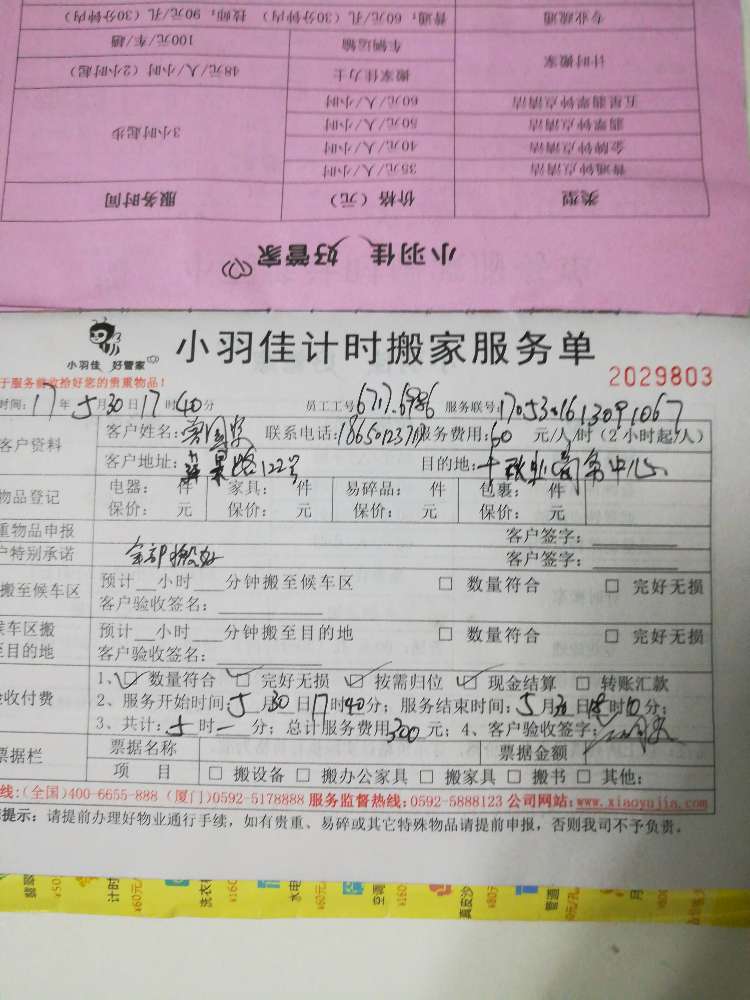 小羽佳 好管家
类型 价格（元） 服务时间
普通钟点清洁 35元/人/小时 3小时起步
金牌钟点清洁 40元/人/小时
翡翠钟点清洁 50元/人/小时
五星翡翠钟点清洁 60元/人/小时
计时搬家 搬家佳力士 48元/人/小时（2小时起）
车辆运输 100元/车/趟
专业疏通 普通：60元/孔（30分钟内） 技师：90元/孔（30分钟内）
小羽佳 好管家
小羽佳计时搬家服务单
2029803
收拾好您的贵重物品！
时间：17年5月30日17时40分 员工工号 服务联号：
客户资料 客户姓名： 联系电话： 服务费用：60元/人/时（2小时起/人）
客户地址： 路122号 目的地： 商务中心
物品登记 电器： 件 家具： 件 易碎品： 件 包裹： 件
保价： 元 保价： 元 保价： 元 保价： 元
重物品申报 客户签字：
户特别承诺 全部搬好 客户签字：
搬至候车区 预计__小时___分钟搬至候车区 □ 数量符合 □ 完好无损
客户验收签名：
车区搬 预计__小时___分钟搬至目的地 □ 数量符合 □ 完好无损
至目的地 客户验收签名：
收付费 1、☑ 数量符合 ☑ 完好无损 ☑ 按需归位 ☑ 现金结算 □ 转账汇款
2、服务开始时间：5月30日17时40分；服务结束时间：5月30日 时10分；
3、共计：5时一分；总计服务费用300元；4、客户验收签字：
票据栏 票据名称 票据金额
项 目 □ 搬设备 □ 搬办公家具 □ 搬家具 □ 搬书 □ 其他：
线：（全国）400-6655-888（厦门）0592-5178888 服务监督热线：0592-5888123 公司网站：www.xiaoyujia.com
提示：请提前办理好物业通行手续，如有贵重、易碎或其它特殊物品请提前申报，否则我司不予负责。